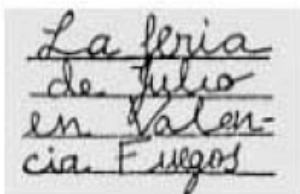 La feria
de Julio
en Valen-
cia Fuegos